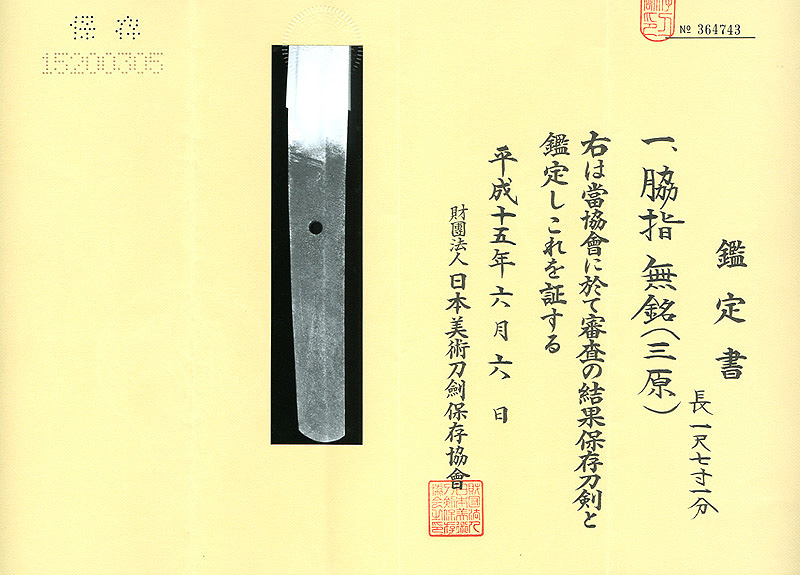 鑑定書
一、脇指 無銘(三原)
長一尺七寸一分
右は當協會に於て審査の結果保存刀剣と
鑑定しこれを証する
平成十五年六月六日
財團法人日本美術刀劍保存協會
№ 364743
保存
15200305